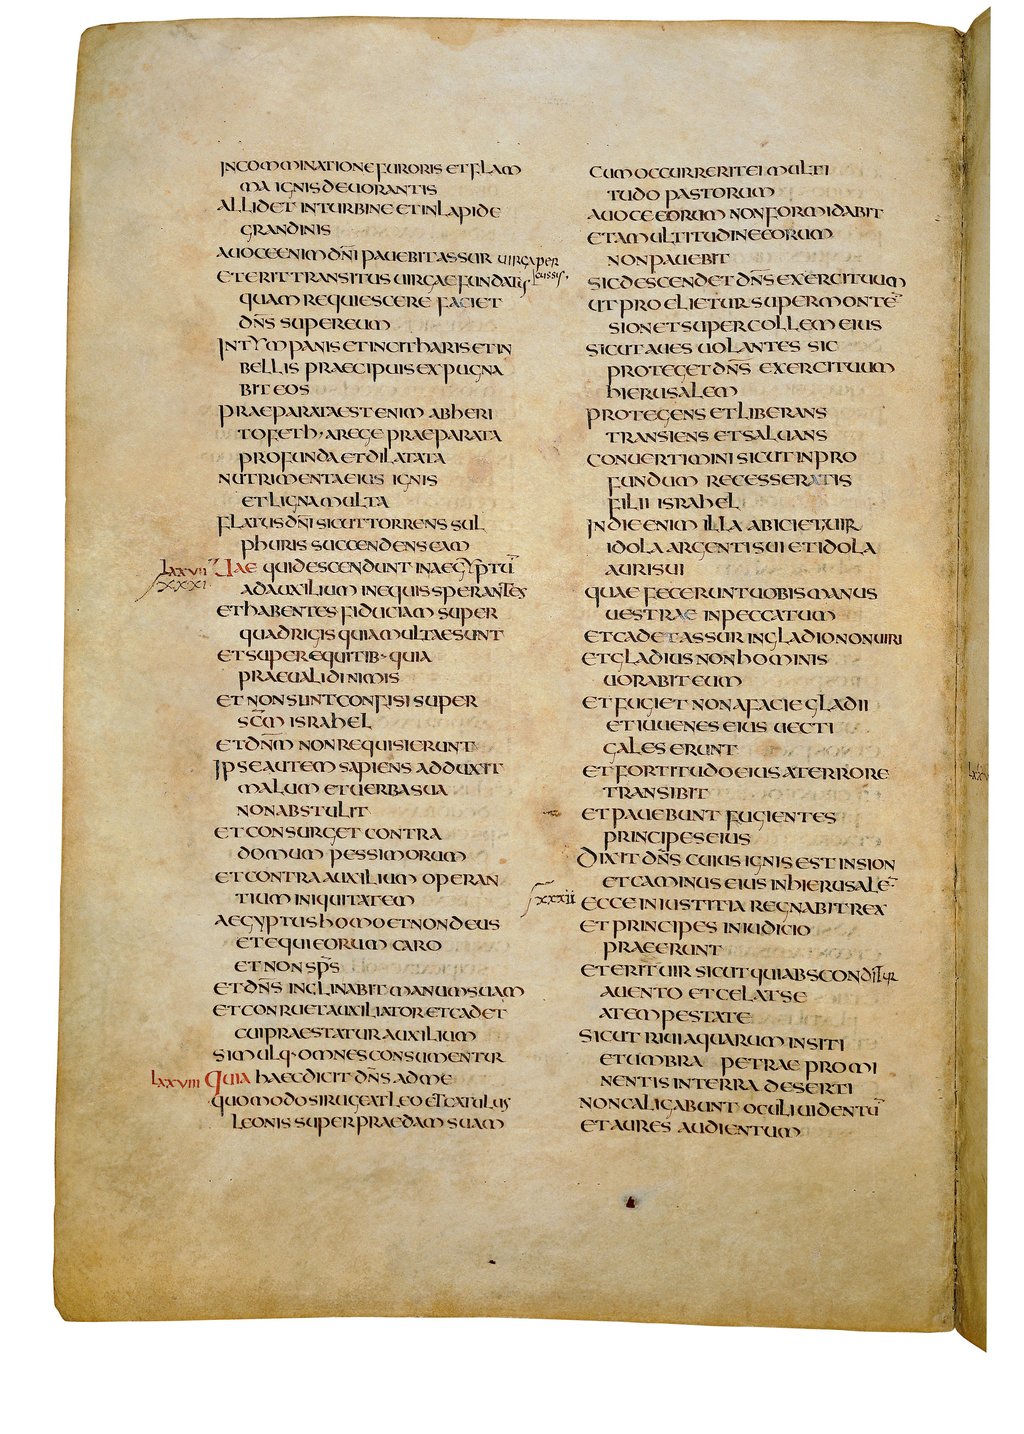 IN COMMINATIONE FURORIS ET FLAM
MA IGNIS DEVORANTIS
ALLIDET IN TURBINE ET IN LAPIDE
GRANDINIS
A VOCE ENIM DNI PAVEBIT ASSUR VIRGA PER
CUSSUS.
ET ERIT TRANSITUS VIRGAE FUNDATUS
QUAM REQUIESCERE FACIET
DNS SUPER EUM
IN TYMPANIS ET IN CITHARIS ET IN
BELLIS PRAECIPUIS EXPUGNA
BIT EOS
PRAEPARATA EST ENIM AB HERI
TOFETH, A REGE PRAEPARATA
PROFUNDA ET DILATATA
NUTRIMENTA EIUS IGNIS
ET LIGNA MULTA
FLATUS DNI SICUT TORRENS SUL
PHURIS SUCCENDENS EAM
LXXVII UAE QUI DESCENDUNT IN AEGYPTU
XXXI
AD AUXILIUM IN EQUIS SPERANTES
ET HABENTES FIDUCIAM SUPER
QUADRIGIS QUIA MULTAE SUNT
ET SUPER EQUITIB· QUIA
PRAEVALIDI NIMIS
ET NON SUNT CONFISI SUPER
SCM ISRAHEL
ET DNM NON REQUISIERUNT
IPSE AUTEM SAPIENS ADDUXIT
MALUM ET VERBA SUA
NON ABSTULIT
ET CONSURGET CONTRA
DOMUM PESSIMORUM
ET CONTRA AUXILIUM OPERAN
TIUM INIQUITATEM
AEGYPTUS HOMO ET NON DEUS
ET EQUI EORUM CARO
ET NON SPS
ET DNS INCLINABIT MANUM SUAM
ET CONRUET AUXILIATOR ET CADET
CUI PRAESTATUR AUXILIUM
SIMULQ· OMNES CONSUMENTUR
LXXVIII QUIA HAEC DICIT DNS AD ME
QUOMODO SI RUGEAT LEO ET CATULUS
LEONIS SUPER PRAEDAM SUAM
CUM OCCURRERIT EI MULTI
TUDO PASTORUM
A VOCE EORUM NON FORMIDABIT
ET A MULTITUDINE EORUM
NON PAVEBIT
SIC DESCENDET DNS EXERCITUUM
UT PROELIETUR SUPER MONTE
SION ET SUPER COLLEM EIUS
SICUT AVES VOLANTES SIC
PROTEGET DNS EXERCITUUM
HIERUSALEM
PROTEGENS ET LIBERANS
TRANSIENS ET SALVANS
CONVERTIMINI SICUT IN PRO
FUNDUM RECESSERATIS
FILII ISRAHEL
IN DIE ENIM ILLA ABICIET VIR
IDOLA ARGENTI SUI ET IDOLA
AURI SUI
QUAE FECERUNT VOBIS MANUS
VESTRAE IN PECCATUM
ET CADET ASSUR IN GLADIO NON VIRI
ET GLADIUS NON HOMINIS
VORABIT EUM
ET FUGIET NON A FACIE GLADII
ET IUVENES EIUS VECTI
GALES ERUNT
ET FORTITUDO EIUS A TERRORE
TRANSIBIT
ET PAVEBUNT FUGIENTES
PRINCIPES EIUS
DIXIT DNS CUIUS IGNIS EST IN SION
ET CAMINUS EIUS IN HIERUSALE
XXXII ECCE IN IUSTITIA REGNABIT REX
ET PRINCIPES IN IUDICIO
PRAEERUNT
ET ERIT VIR SICUT QUI ABSCONDITUR
A VENTO ET CELAT SE
A TEMPESTATE
SICUT RIVI AQUARUM IN SITI
ET UMBRA PETRAE PROMI
NENTIS IN TERRA DESERTI
NON CALIGABUNT OCULI VIDENTU
ET AURES AUDIENTUM